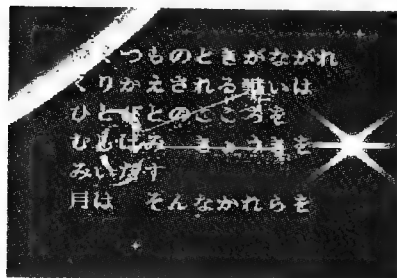 いくつものときがながれ
くりかえされる戦いは
ひとびとのこころを
むしばみ　きょうきを
みいだす
月は　そんなかれらを